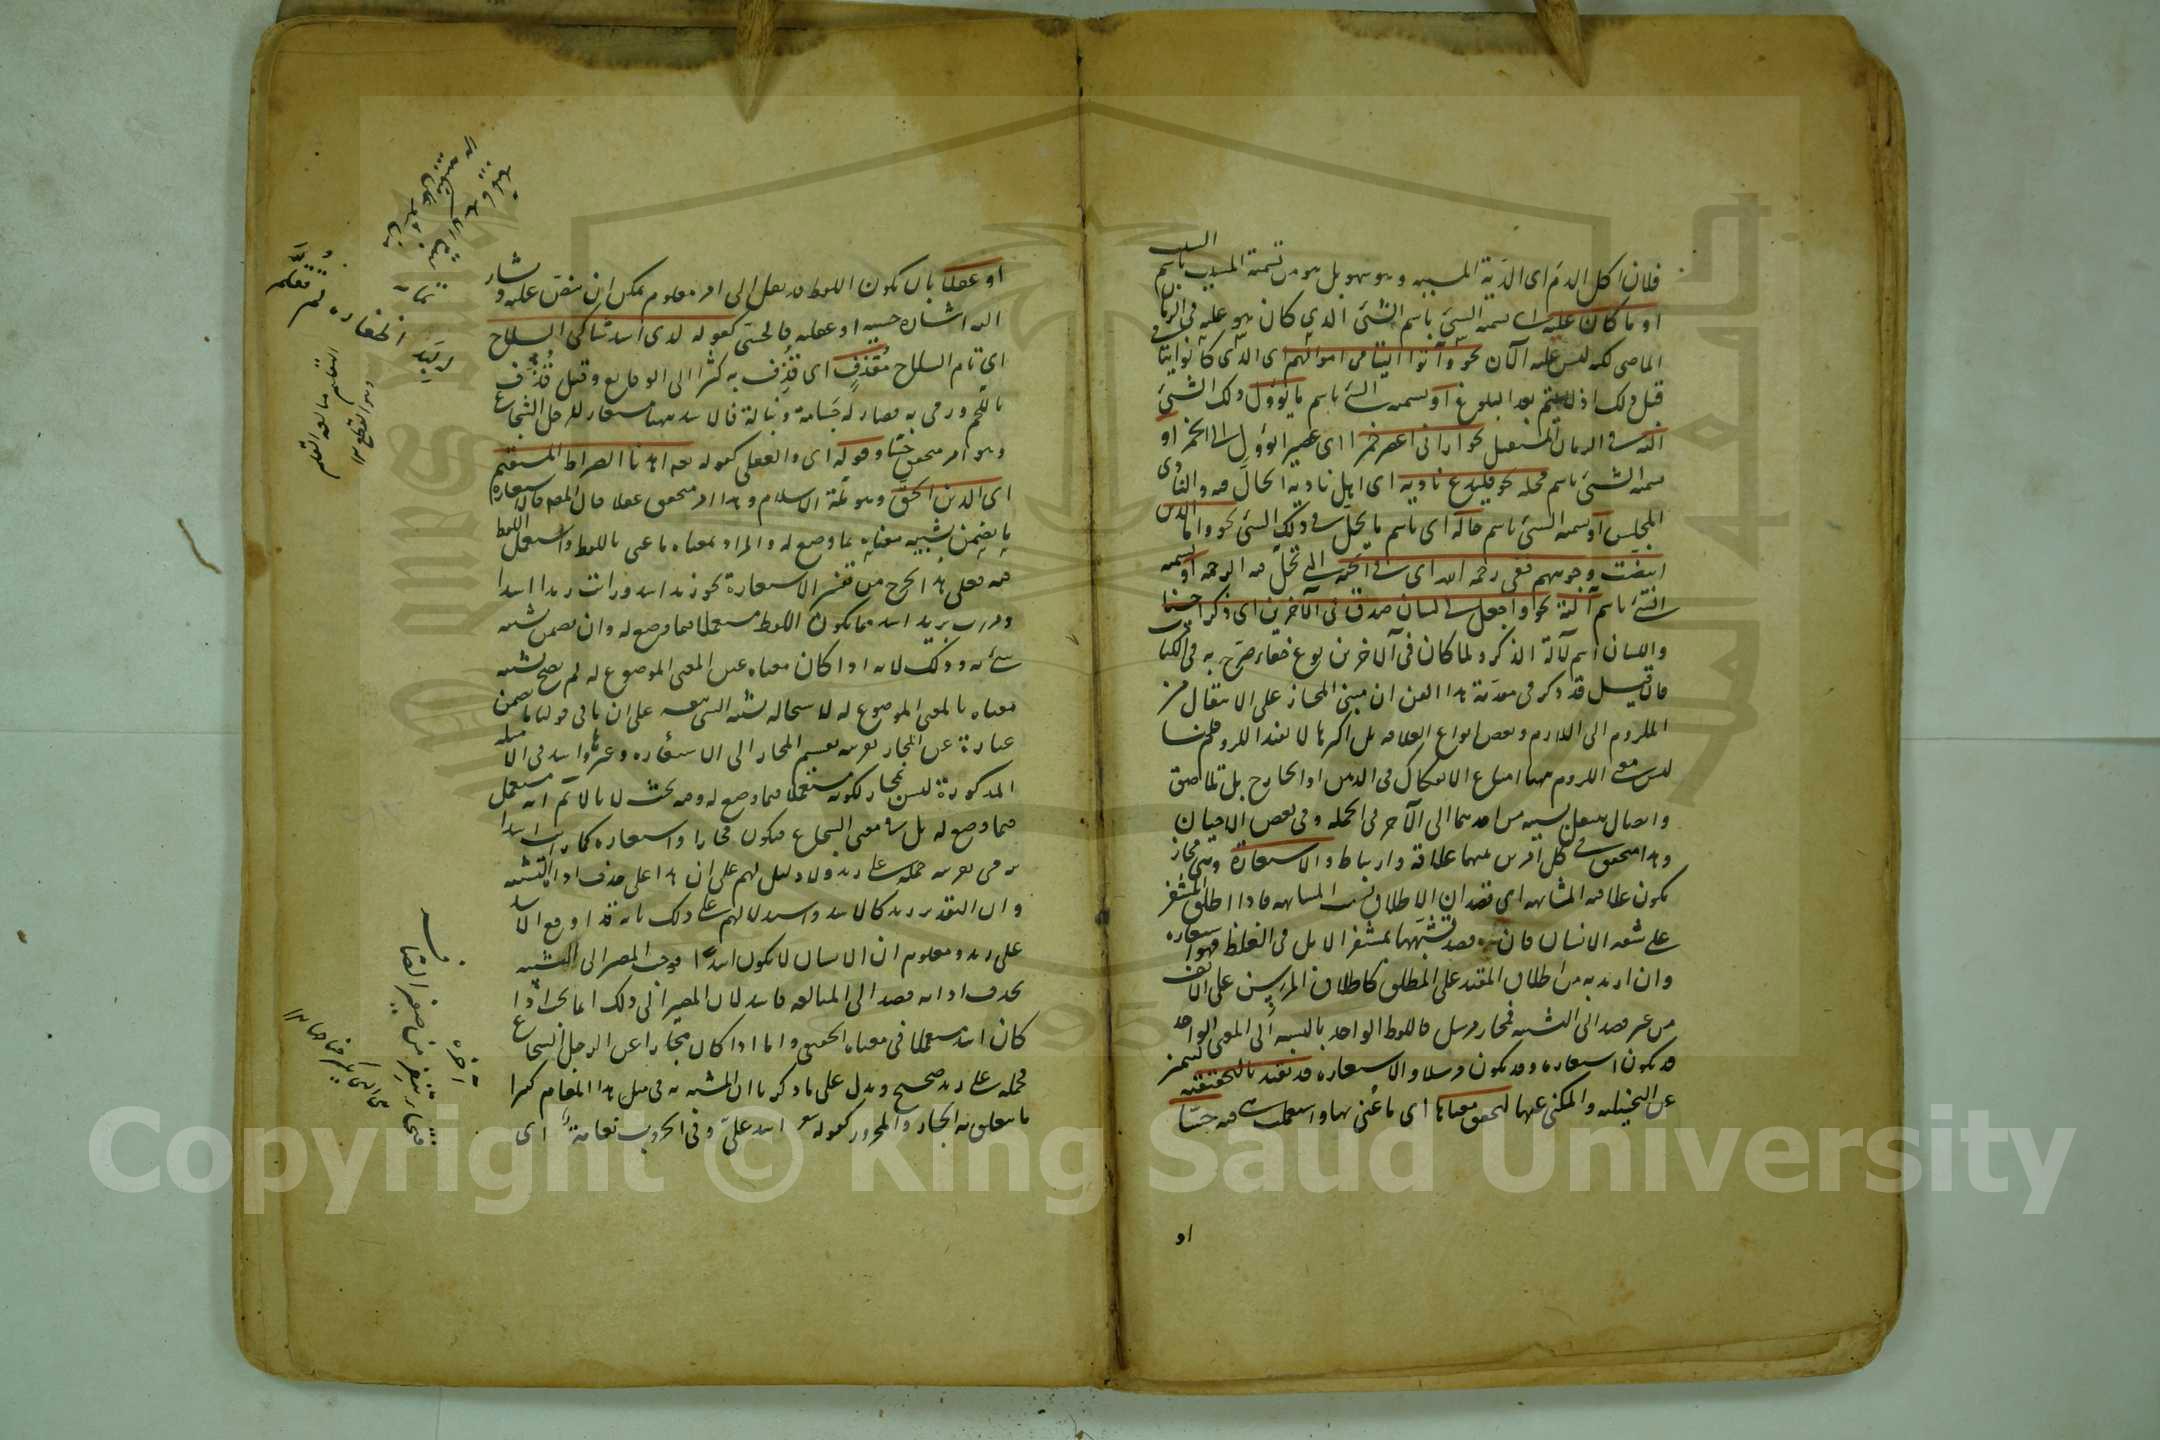 السبب
فلان اكل الدم اى الدية المسببة وهو سهو بل هو من تسمية المسبب باسم
او ما كان عليه اى تسمية الشئ باسم الشئ الذي كان هو عليه فى الزمان
الماضى لكنه ليس عليه الآن نحو وآتوا اليتامى اموالهم اى الذى كانوا يتامى
قبل ذلك اذ لا يتم بعد البلوغ او تسمية الشئ باسم ما يؤول ذلك الشئ
اليه فى الزمان المستقبل نحو ارانى اعصر خمرا اى عصيرا يؤول الى الخمر او
تسمية الشئ باسم محله نحو فليدع ناديه اى اهل ناديه الحال فيه والنادى
المجلس او تسمية الشئ باسم حاله اى باسم ما يحل فى ذلك الشئ نحو واما الذين
ابيضت وجوههم ففى رحمة الله اى فى الجنة التى تحل فيه الرحمة او تسمية
الشئ باسم آلته نحو واجعل لى لسان صدق فى الآخرين اى ذكرا حسنا
واللسان اسم لآلة الذكر ولما كان فى الآخرين نوع خفاء صرح به فى الكتاب
فان قيل قد ذكر فى مقدمة هذا الفن ان مبنى المجاز على الانتقال من
الملزوم الى اللازم وبعض انواع العلاقة بل اكثرها لا يفيد اللزوم قلنا
ليس معنى اللزوم ههنا امتناع الانفكاك فى الذهن او الخارج بل تلاصق
واتصال ينتقل بسببه من احدهما الى الآخر فى الجملة وفى بعض الاحيان
وهذا متحقق فى كل امرين بينهما علاقة وارتباط والاستعارة وهى مجاز
يكون علاقته المشابهة اى قصد ان الاطلاق بسبب المشابهة فاذا اطلق المشفر
على شفة الانسان فان قصد تشبيهها بمشفر الابل فى الغلظ فهو استعارة
وان اريد به من اطلاق المقيد على المطلق كاطلاق المرسن على الانف
من غير قصد الى التشبيه فمجاز مرسل فاللفظ الواحد بالنسبة الى المعنى الواحد
قد يكون استعارة وقد يكون مرسلا والاستعارة قد تقيد بالتحقيقية لتميز
عن التخييلية والمكنى عنها لتحقق معناها اى ما عنى بها واستعملت هى فيه حسا
او
او عقلا بان يكون اللفظ قد نقل الى امر معلوم يمكن ان ينص عليه ويشار
اليه اشارة حسية او عقلية فالحسى كقوله لدى اسد شاكى السلاح
اى تام السلاح مقذف اى قذف به كثيرا الى الوقايع وقيل قذف
باللحم ورمى به فصار له جسامة ونبالة فالاسد ههنا مستعار للرجل الشجاع
وهو امر متحقق حسا وقوله اى والعقلى كقوله تعه اهدنا الصراط المستقيم
اى الدين الحق وهو ملة الاسلام وهذا امر متحقق عقلا قال المصه فالاستعارة
ما يضمن تشبيه معناه بما وضع له والمراد بمعناه ما عنى باللفظ واستعمل اللفظ
فيه فعلى هذا يخرج من تفسير الاستعارة نحو زيد اسد ورايت زيدا اسدا
ومررت بزيد اسد مما يكون اللفظ مستعملا فيما وضع له وان تضمن تشبيه
شئ به وذلك لانه اذا كان معناه عين المعنى الموضوع له لم يصح تشبيه
معناه بالمعنى الموضوع له لاستحالة تشبيه الشئ بنفسه على ان ما فى قولنا ما تضمن
عبارة عن المجاز بقرينة تقسيم المجاز الى الاستعارة وغيرها واسد فى الامثلة
المذكورة ليس بمجاز لكونه مستعملا فيما وضع له وفيه بحث لانا لا نم انه مستعمل
فيما وضع له بل فى معنى الشجاع فيكون مجازا واستعارة كما فى رايت اسدا
يرمى بقرينة حمله على زيد ولا دليل لهم على ان هذا على حذف اداة التشبيه
وان التقدير زيد كالاسد واستدلالهم على ذلك بانه قد اوقع الاسد
على زيد ومعلوم ان الانسان لا يكون اسدا فوجب المصير الى التشبيه
بحذف اداته قصدا الى المبالغة فاسد لان المصير الى ذلك انما يجب اذا
كان اسد مستعملا فى معناه الحقيقى واما اذا كان مجازا عن الرجل الشجاع
فحمله على زيد صحيح ويدل على ما ذكرنا ان المشبه به فى مثل هذا المقام كثيرا
ما يتعلق به الجار والمجرور كقوله اسد على وفى الحروب نعامة اى
له لبد اظفاره لم تقلم
التقليم مبالغة القلم
وهو القطع ١٢
آخره
فتخاء تنفر من صفير الصافر